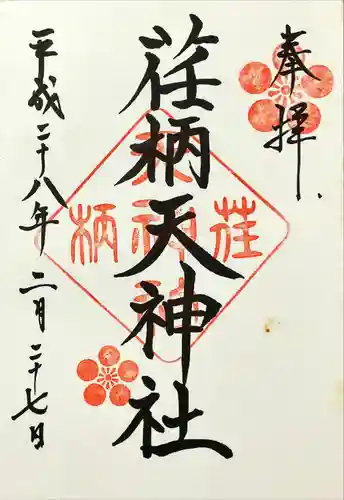 奉拝
荏柄天神社
平成二十八年二月二十七日
荏柄